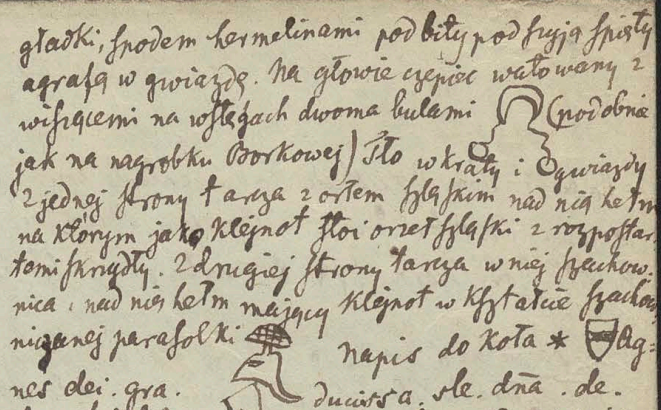 gładki, spodem hermelinami podbity pod szyją spięty
agrafą w gwiazdę. Na głowie czepiec watowany z
wiszącemi na wstęgach dwoma bulami (podobnie
jak na nagrobku Borkowej) Tło w kraty i gwiazdy
z jednej strony tarcza z orłem szląskim nad nią hełm
na którym jako klejnot stoi orzeł szląski z rozpostar-
temi skrzydły. Z drugiej strony tarcza w niej szachow-
nica, nad nią hełm mający klejnot w kształcie szachow
nicznej parasolki
napis do koła * Ag-
nes dei. gra. ducissa. sle. dna. de.